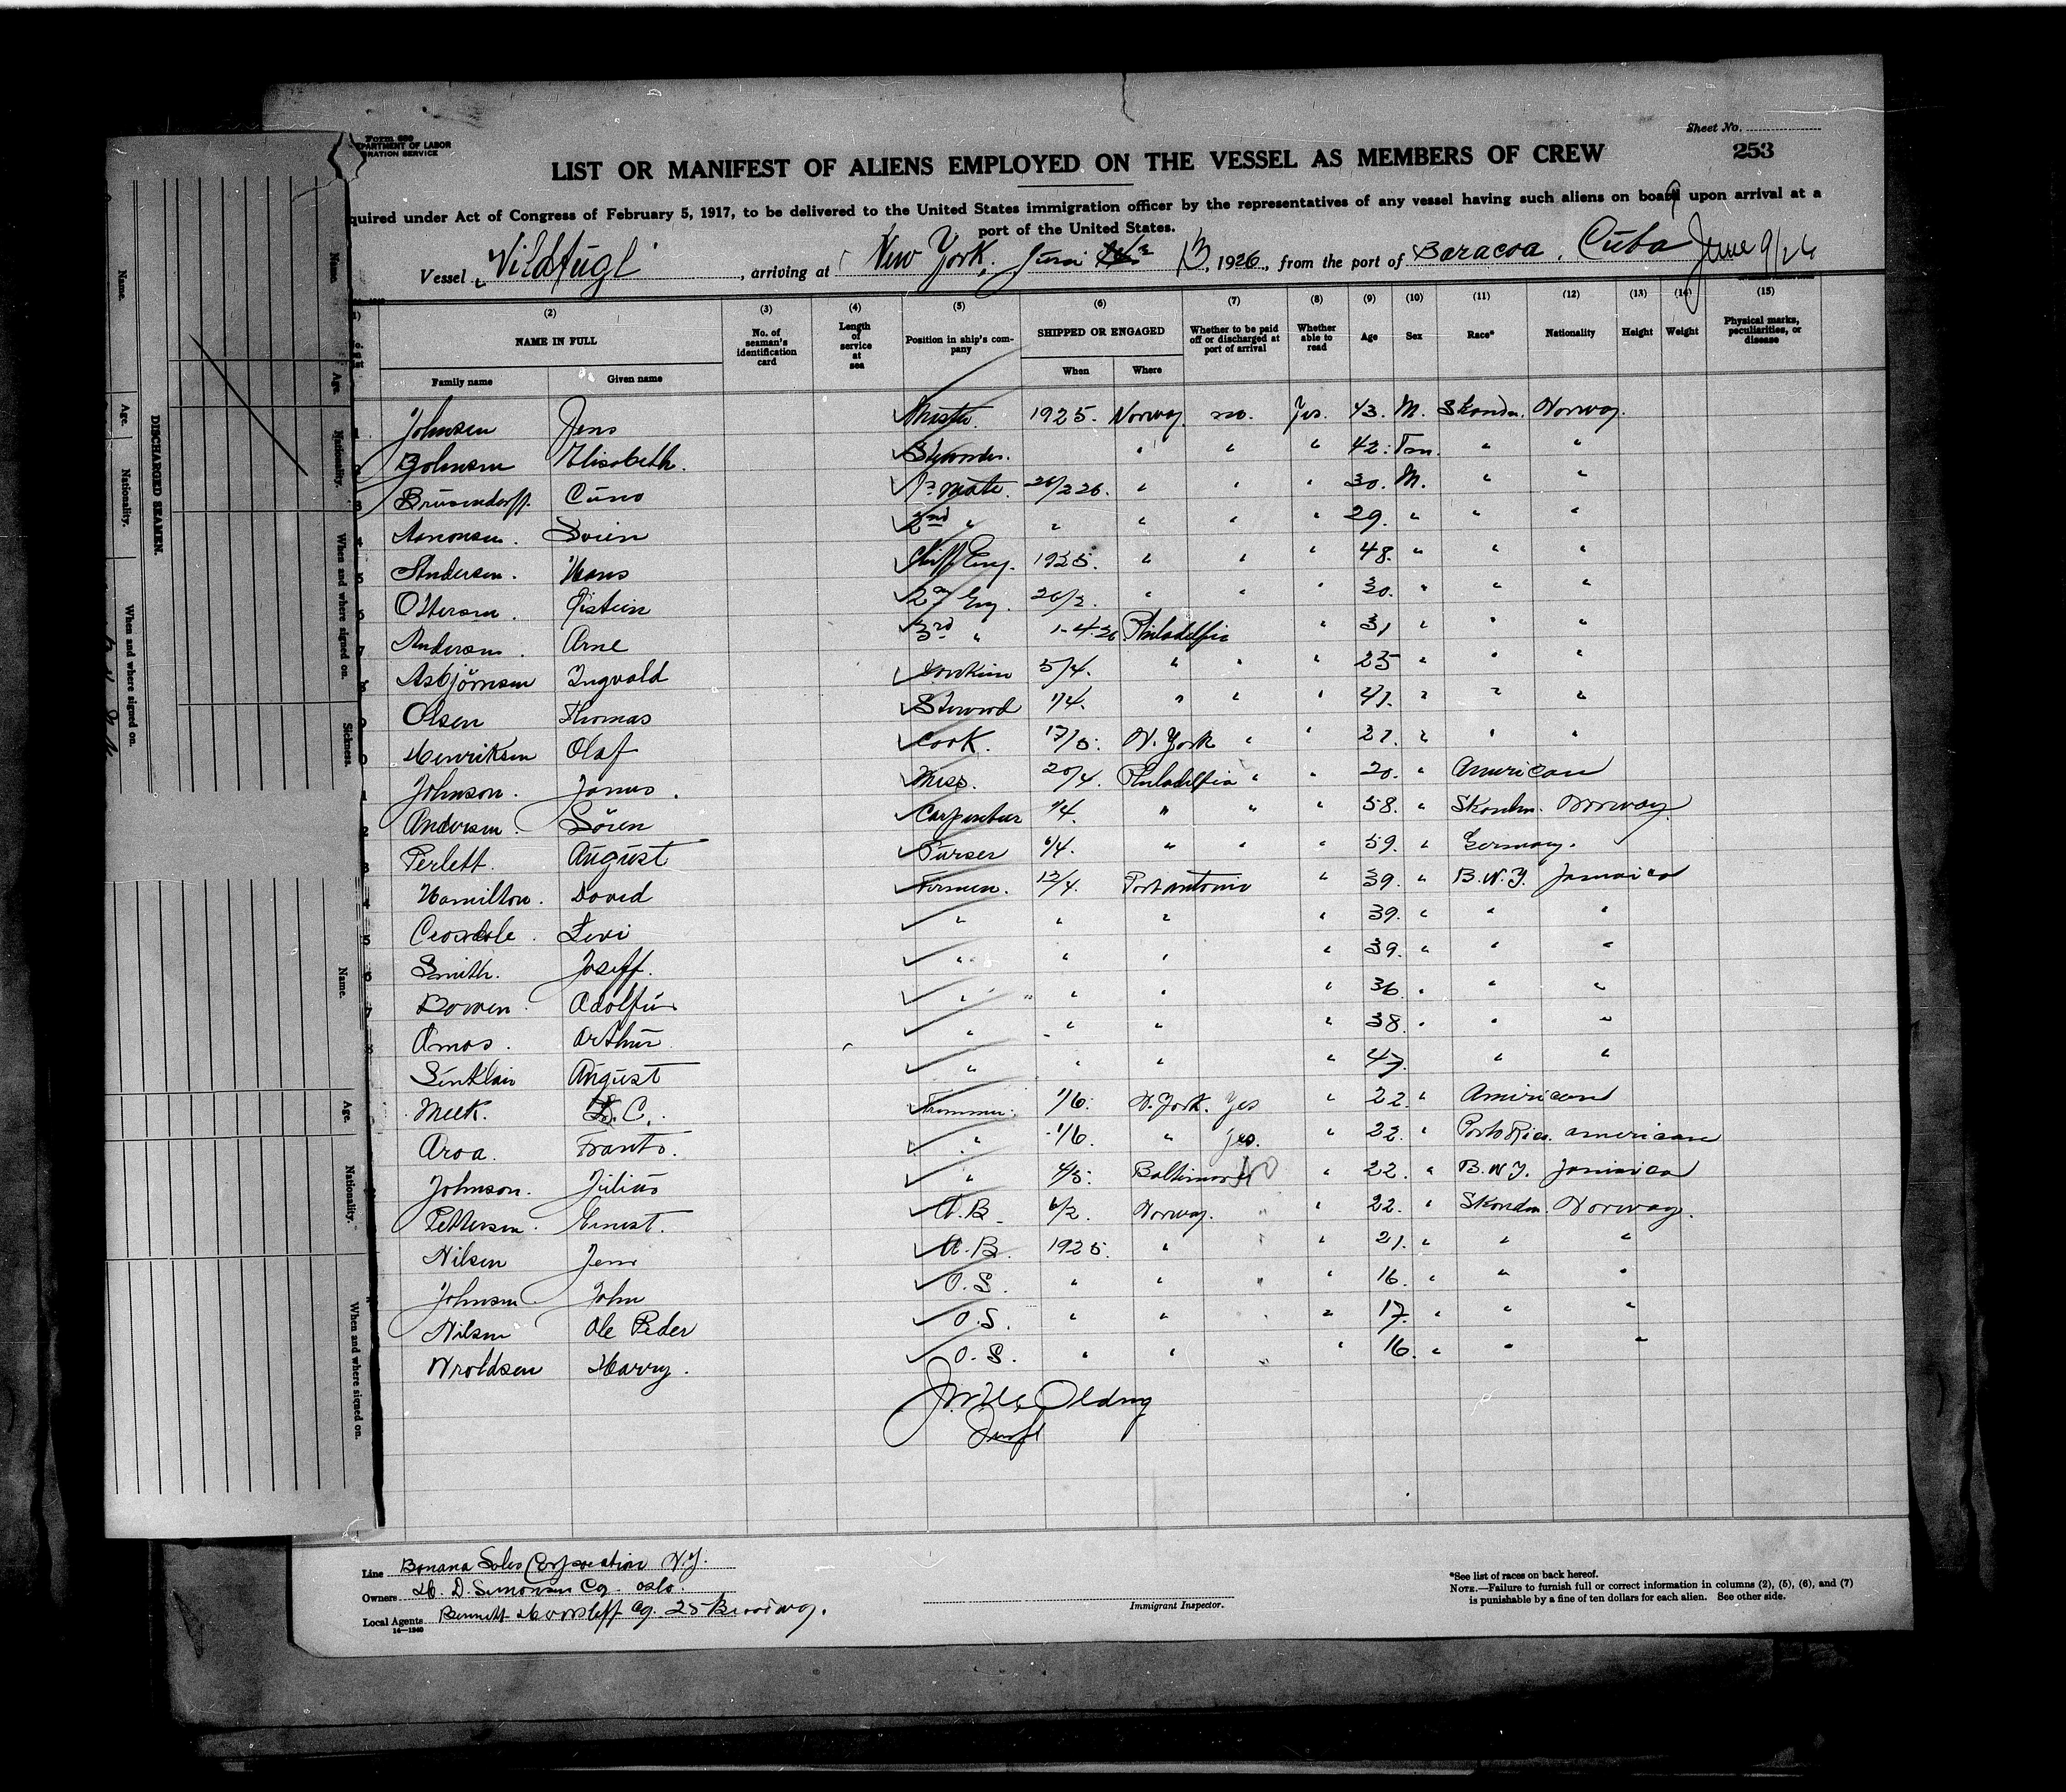 Sheet No.
253
Form 689
PARTMENT OF LABOR
RATION SERVICE
LIST OR MANIFEST OF ALIENS EMPLOYED ON THE VESSEL AS MEMBERS OF CREW
quired under Act of Congress of February 5, 1917, to be delivered to the United States immigration officer by the representatives of any vessel having such aliens on board upon arrival at a
port of the United States.
Vessel "Vildfugl", arriving at New York, Juni 13, 1926, from the port of Baracoa, Cuba June 9/26
(2) (3) (4) (5) (6) (7) (8) (9) (10) (11) (12) (13) (14) (15)
NAME IN FULL No. of seaman's identification card Length of service at sea Position in ship's company SHIPPED OR ENGAGED Whether to be paid off or discharged at port of arrival Whether able to read Age Sex Race* Nationality Height Weight Physical marks, peculiarities, or disease
Family name Given name When Where
Johnsen Jens Master 1925. Norway no. Yes. 43. M. Skandn. Norway.
Johnsen Elisabeth. " " " 42. " "
Brusendorff. Cuno 1ˢ mate. 26/2 26. " " " 30. M. " "
Aanonsen. Soren 2nd " " " " " 29. " " "
Andersen. Hans Chiff Eng. 1925. " " " 48. " " "
Ottersen. Øistein 2nd Eng. 26/2. " " " 30. " " "
Andersen. Arne 3rd " 1-4-26 Philadelfia " 31 " " "
Asbjörnsen Ingvald Donkim 5/4. " " " 25 " " "
Olsen Thomas Steward 1/4. " " " 41. " " "
Henriksen Olaf Cook. 17/5. N. York " " 27. " " "
Johnson. James. Mess. 20/4. Philadelfia " " 20. " American
Andersen. Sören Carpenter 1/4. " " " 58. " Skandn. Norway.
Perlett. August Purser 6/4. " " " 59. " Germany.
Hamilton. David Firemen. 12/4. Port antonio " 39. " B.W.I. Jamaica
Levi " " " " 39. " " "
Smith. Joseff. " " " " 39. " " "
Bowen. Adolfus " " " " 36 " " "
Amos. Arthur " " " " 38. " " "
Sinklair August " " " " 47. " " "
Meek. C. Trimmer. 1/6. N. York. Yes " 22. " American
Aroa. " 1/6. " yes. " 22. " Porto Rico. american
Johnson. Julius " 4/5. Baltimore No " 22. " B.W.I. Jamaica
Pettersen. Ernest. A.B. 6/2. Norway. " " 22. " Skandn. Norway.
Nilsen Jens A.B. 1925. " " " 21. " " "
Johnsen John O.S. " " " " 16. " " "
Nilsen Ole Peder O.S. " " " " 17. " " "
Wroldsen Harry. O.S. " " " " 16. " " "
Line Banana Sales Corporation N.Y.
Owners D. Simonsen Co. Oslo.
Local Agents Bennett Hvoslef Co. 25 Broadway.
14—1240
Immigrant Inspector.
*See list of races on back hereof.
NOTE.—Failure to furnish full or correct information in columns (2), (5), (6), and (7)
is punishable by a fine of ten dollars for each alien. See other side.
DISCHARGED SEAMEN.
Name. Age. Nationality. When and where signed on.
Name. Age. Nationality. When and where signed on. Sickness.
Name. Age. Nationality. When and where signed on.